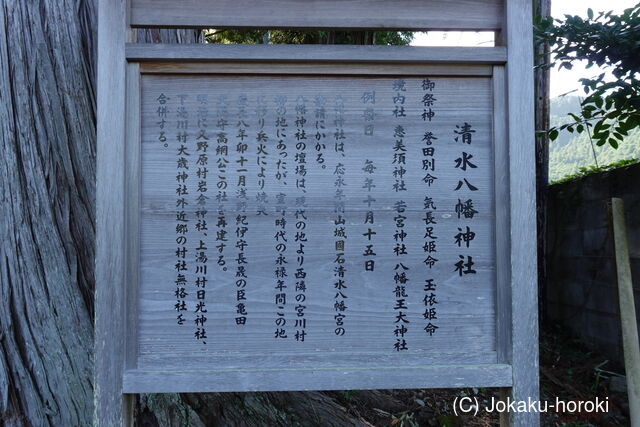 清水八幡神社
御祭神 誉田別命 気長足姫命 玉依姫命
境内社 恵美須神社 若宮神社 八幡龍王大神社
例祭日 毎年十月十五日
神社は、応永年 山城國石清水八幡宮の
勧請にかかる。
八幡神社の壇場は、現代の地より西隣の宮川村
の地にあったが、室町時代の永禄年間この地
より兵火により焼失
八年卯十一月浅野紀伊守長晟の臣亀田
守高綱公この社を再建する。
明治に又野原村岩倉神社、上湯川村日光神社、
下湯川村大歳神社外近郷の村社無格社を
合併する。
(C) Jokaku-horoki